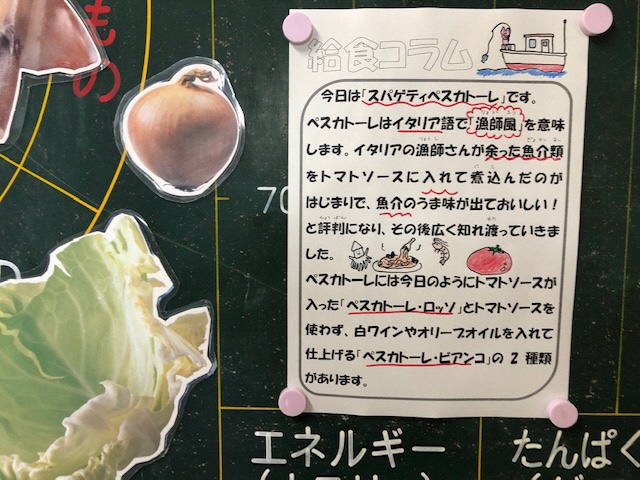 もの
給食コラム
今日は「スパゲティペスカトーレ」です。
ペスカトーレはイタリア語で「漁師風」を意味
します。イタリアの漁師さんが余った魚介類
をトマトソースに入れて煮込んだのが
はじまりで、魚介のうま味が出ておいしい！
と評判になり、その後広く知れ渡っていきま
した。
ペスカトーレには今日のようにトマトソースが
入った「ペスカトーレ・ロッソ」とトマトソースを
使わず、白ワインやオリーブオイルを入れて
仕上げる「ペスカトーレ・ビアンコ」の 2 種類
があります。
70
エネルギー
たんぱく